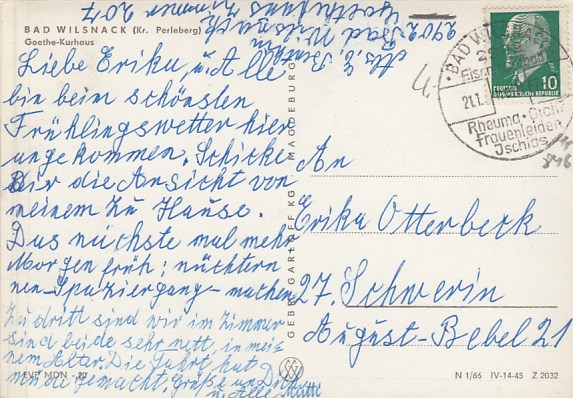 BAD WILSNACK (Kr. Perleberg)
Goethe-Kurhaus
2902 Bad Wilsnack
Goethekurhaus
Zimmer 207
Liebe Erika, u. Alle
bin beim schönsten
Frühlingswetter hier
angekommen. Schicke
Dir die Ansicht von
meinem Zu Hause.
Das nächste mal mehr
Morgen früh: nüchtern
nen-Spaziergang-machen
Zu dritt sind wir im Zimmer
sind beide sehr nett, in mei-
nem Alter. Die Fahrt hat
gemacht. Grüße an Dich
u. Alle Mutti
EVP MDN -,20
GEBR. GARLOFF KG MAGDEBURG
BAD WILSNACK
21.1.
Rheuma · Gicht
Frauenleiden
Ischias
DEUTSCHE
DEMOKRATISCHE REPUBLIK
10
An
Erika Otterbeck
27. Schwerin
August-Bebel 21
N 1/66 IV-14-45 Z 2032